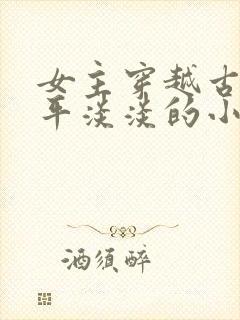 女主穿越古
平淡淡的小
酒须醉